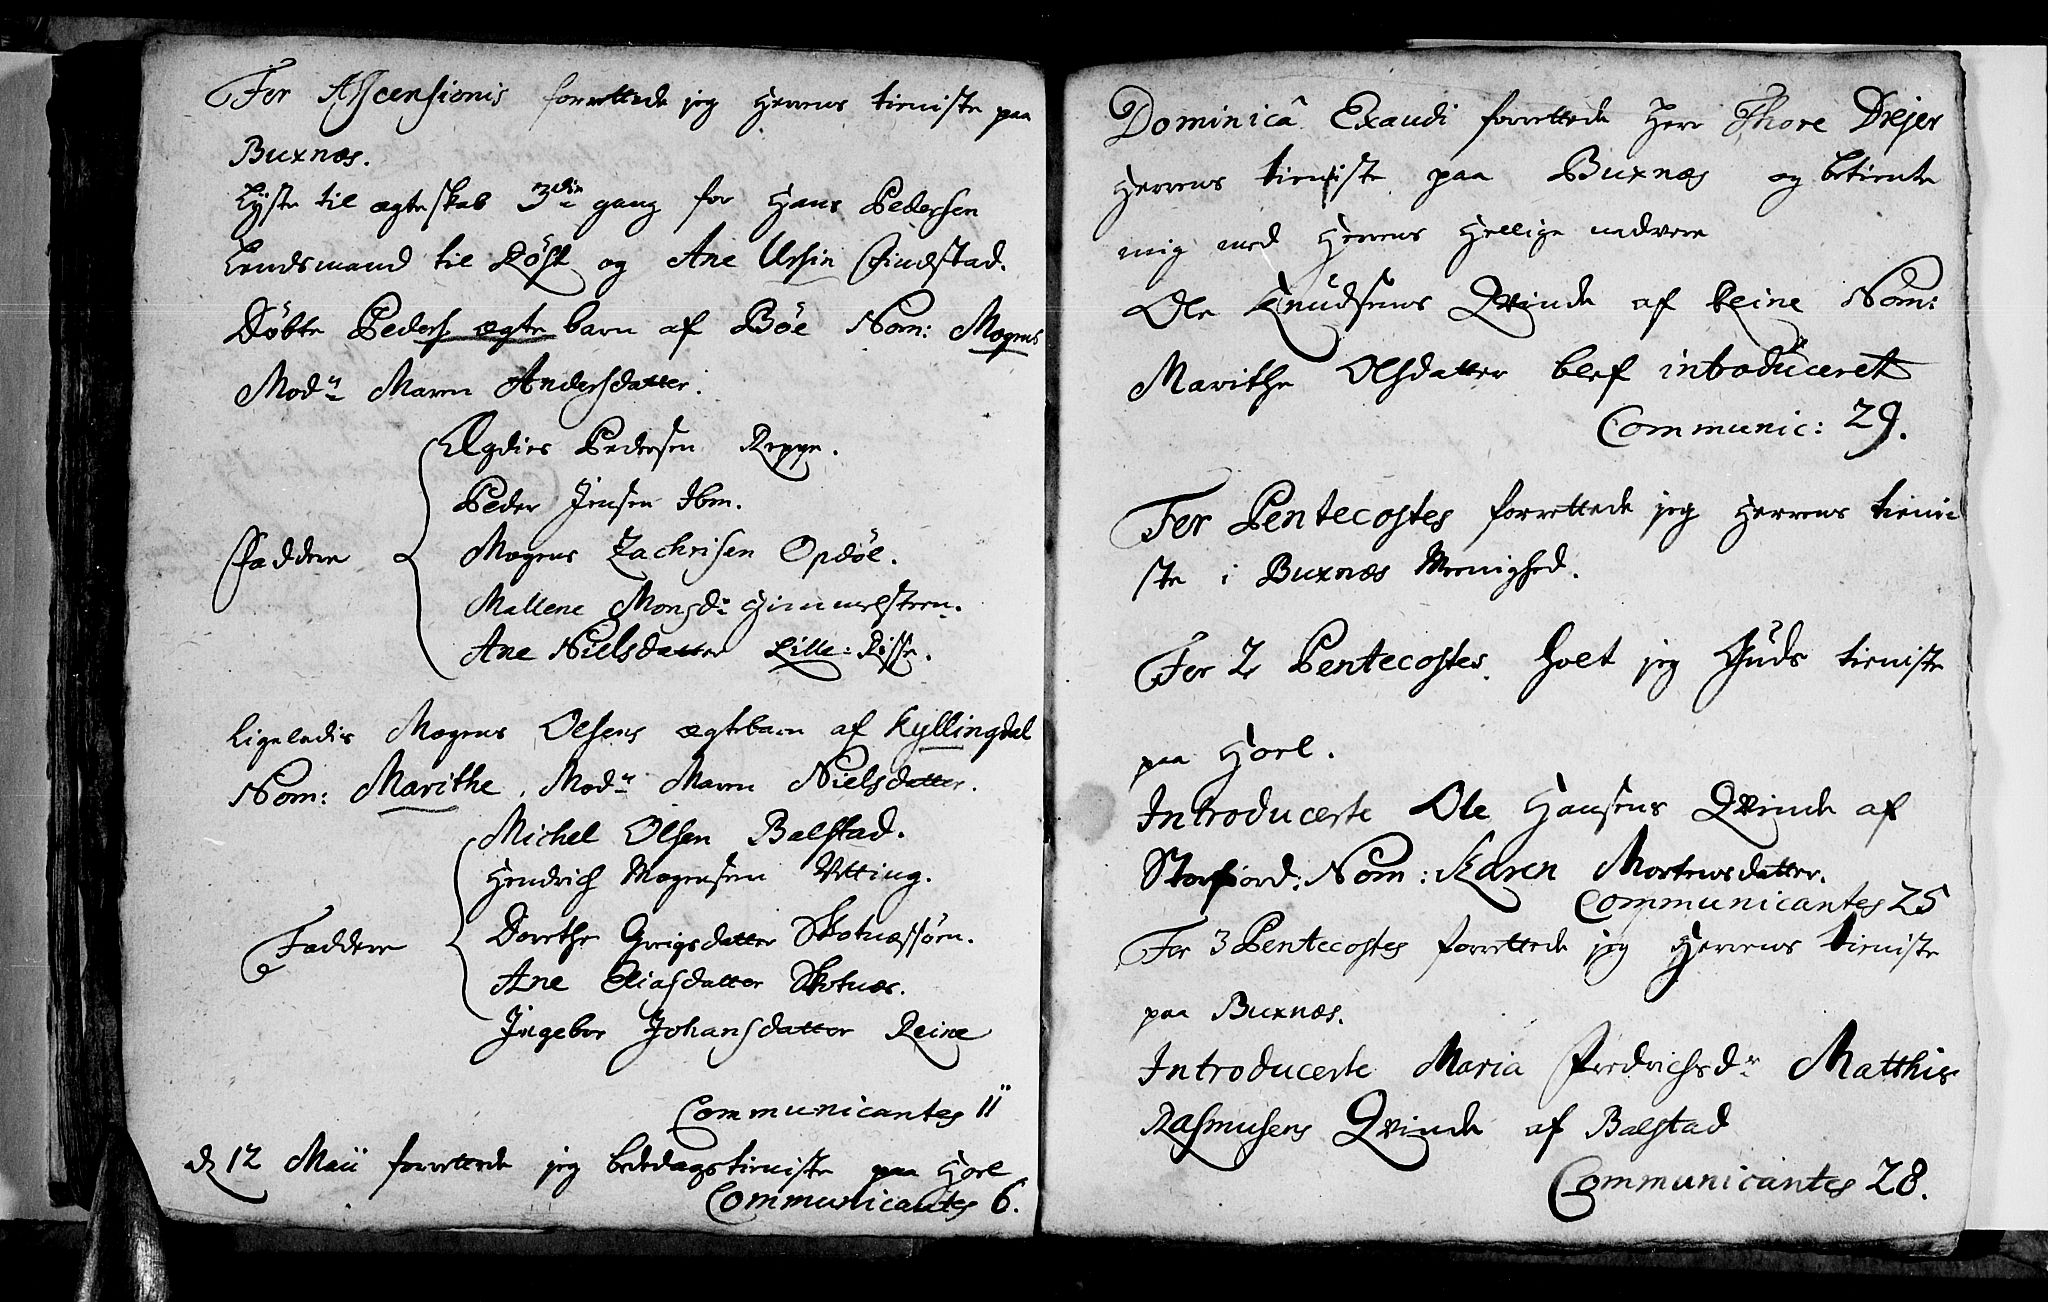 Fer Ascensionis forrettede jeg Herrens tieniste paa
Buxnæs.
Lyste til ægteskab 3die gang for Hans Pedersen
Lendsmand til Røst og Ane Ursin Finestad.
Døbte Peders ægte barn af Böe Nom: Mogens
Modn Maren Andersdatter.
Ægdies Pedersen Reppe.
Peder Jensen Ibm.
Faddere Mogens Zachrisen Opdöl.
Mallene Monsdr Gimmelsteen.
Ane Nielsdatter Lille: Risse.
Ligeledis Mogens Olsens ægtebarn af Kyllingdal
Nom: Marithe. Modn Maren Nielsdatter.
Michel Olsen Balstad.
Hendrich Mogensen Utting.
Faddere Dorethe Greigsdatter Skotnæssöen.
Ane Eliasdatter Skotnæs.
Ingebor Johansdatter Reine
Communicantes 11
d 12 Maii forrettede jeg bededagstieniste paa Hoel
Communicantes 6.
Dominicâ Exaudi forrettede Herr Thore Drejer
Herrens tieniste paa Buxnæs og betiente
mig med Herrens Hellige nadvere
Ole Knudsens Qvinde af Reine Nom:
Marithe Olsdatter blef introduceret
Communic: 29.
Fer Pentecostes forrettede jeg Herrens tieni
ste i Buxnæs Meenighed.
Fer 2 Pentecostes holt jeg Guds tieniste
paa Hoel.
Introducerte Ole Hansens Qvinde af
Storfiord: Nom: Karen Mortensdatter.
Communicantes 25
Fer 3 Pentecostes forrettede jeg Herrens tieniste
paa Buxnæs.
Introducerte Maria Fredrichsdr Matthis
Rasmusens Qvinde af Balstad
Communicantes 28.